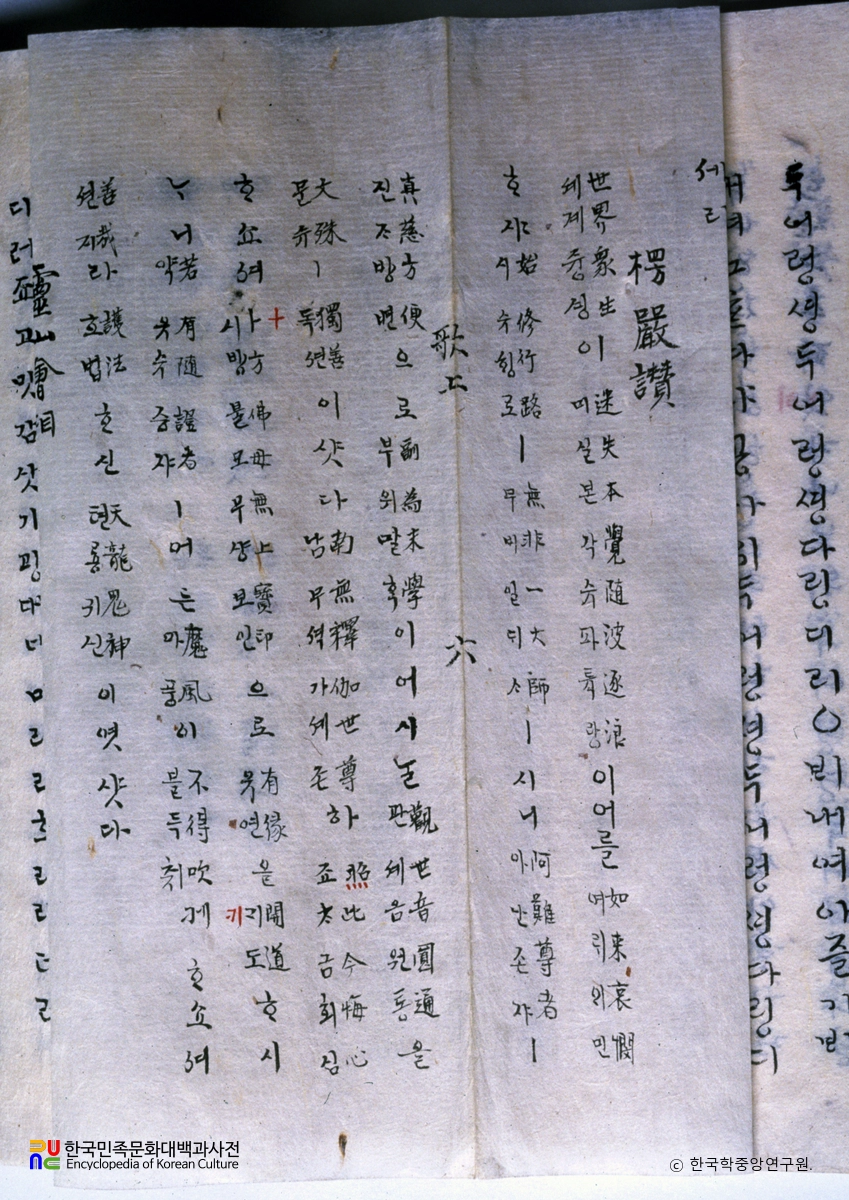 두어렁셩두어렁셩다링디리○비내여아즐가비
두어렁셩다링디
楞嚴讚
世셰界계衆즁生셩이迷미失실本본覺각隨수波파逐튝浪랑이어를如여來릭哀의憫민
始시修수行힝路로ㅣ無무非비一일大디師ᄉᆞㅣ시니阿아難난尊존者쟈ㅣ
歌上 六
真진慈ᄌᆞ方방便변으로副부為위末말學ᄒᆞᆨ이어시ᄂᆞᆯ觀관世셰音음圓원通통을
大殊문슈ㅣ獨독善션이샷다南남無무釋셕伽가世셰尊존하照죠此ᄎᆞ今금悔회心심
ᄒᆞ쇼셔十시方방佛불母모無무上샹寶보印인으로有유緣연을開ᄀᆡ道도ᄒᆞ시
ᄂᆞ니若약有유隨수證증者쟈ㅣ어든魔마風풍이不불得득吹취케ᄒᆞ쇼셔
善션哉ᄌᆡ라護호法법ᄒᆞ신天텬龍룡鬼귀神신이엿샷다
靈山會
한국민족문화대백과사전
Encyclopedia of Korean Culture
© 한국학중앙연구원.